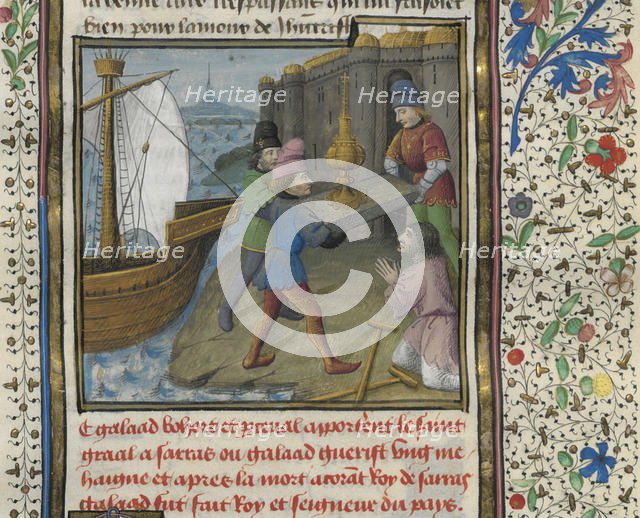 bien pour lamour de
Heritage Heritage Heritage
Heritage Heritage Heritage
Galaad bohort et perceval apporterent le saint
graal a sarras ou galaad guerist vng me
haigne et apres la mort
roy de sarras
galaad fut fait roy et seigneur du pays.